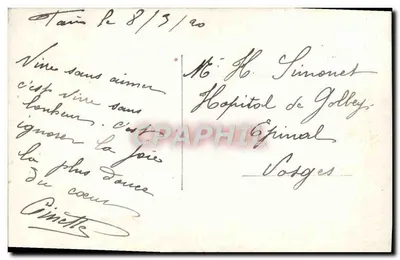 Paris le 8/3/20
Vivre sans aimer
c'est vivre sans
bonheur. c'est
ignorer la joie
la plus douce
du coeur
Ginette
Mr H. Simonet
Hopital de Golbey
Epinal
Vosges
CPAPHIL